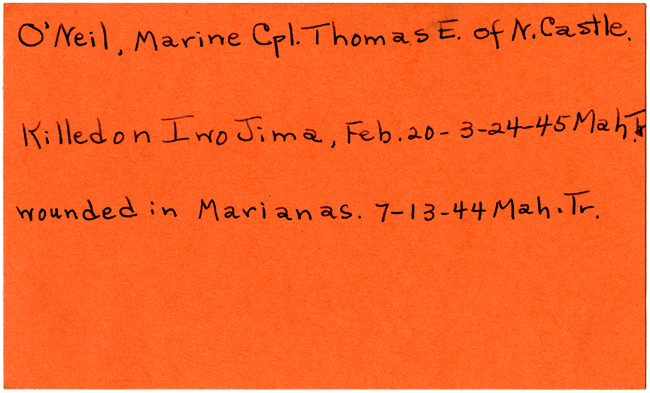 O'Neil, Marine Cpl. Thomas E. of N. Castle.
Killed on Iwo Jima, Feb. 20 - 3-24-45 Mah. Tr
wounded in Marianas. 7-13-44 Mah. Tr.